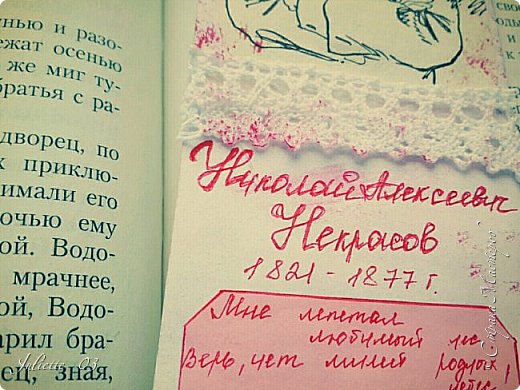 нью и разо-
ежат осенью
же миг ту-
братья с ра-
дворец, по
х приклю-
нимали его
очью ему
ой. Водо-
мрачнее,
ой, Водо-
арил бра-
ец, зная,
Николай Алексеевич
Некрасов
1821 - 1877 г.
Мне лепетал
любимый лес
Верь, нет милей родных
Juliette_03
Страна Мастеров